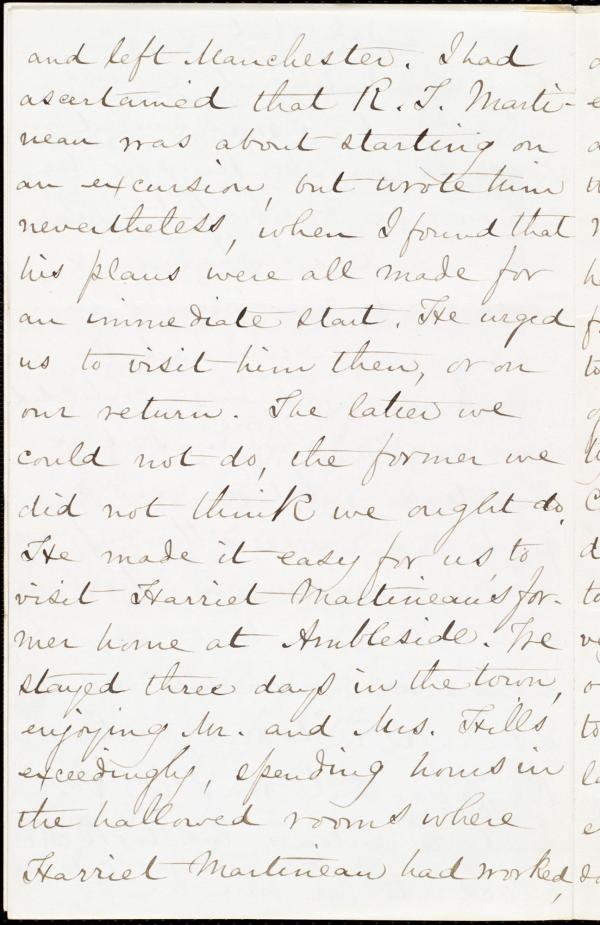 and left Manchester. I had
ascertained that R. F. Marti-
neau was about starting on
an excursion, but wrote him
nevertheless, when I found that
his plans were all made for
an immediate start. He urged
us to visit him then, or on
our return. The latter we
could not do, the former we
did not think we ought do.
He made it easy for us, to
visit Harriet Martineau's for-
mer home at Ambleside. We
stayed three days in the town,
enjoying Mr. and Mrs. Hills'
exceedingly, spending hours in
the hallowed rooms where
Harriet Martineau had worked,